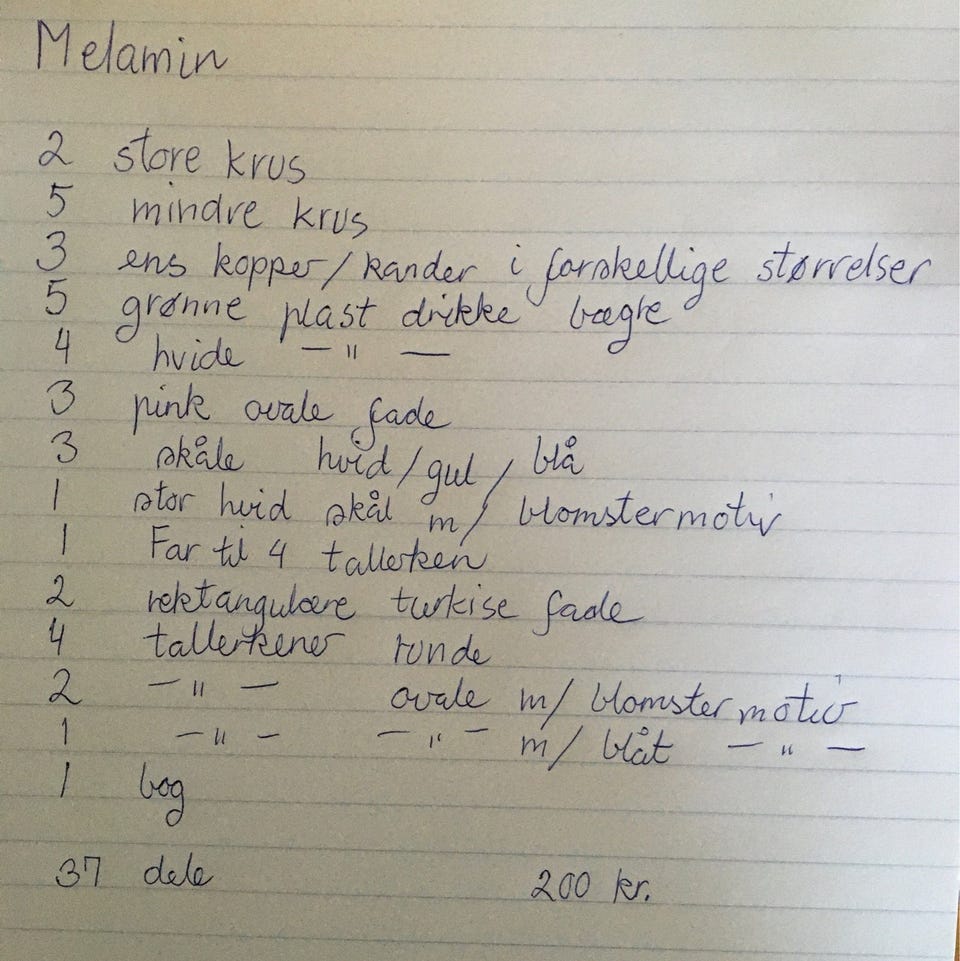 Melamin
2 store krus
5 mindre krus
3 ens kopper/kander i forskellige størrelser
5 grønne plast drikke bægre
4 hvide — " —
3 pink ovale fade
3 skåle hvid/gul/blå
1 stor hvid skål m/ blomstermotiv
1 Far til 4 tallerken
2 rektangulære turkise fade
4 tallerkener runde
2 — " — ovale m/ blomstermotiv
1 — " — — " — m/ blåt — " —
1 bog
37 dele 200 kr.